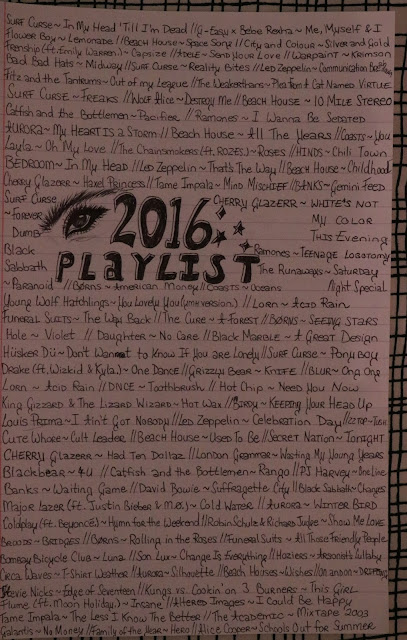 Surf Curse ~ In My Head 'Till I'm Dead // G-Easy x Bebe Rexha ~ Me, Myself & I
Flower Boy ~ Lemonade // Beach House ~ Space Song // City and Colour ~ Silver and Gold
Frenship (ft. Emily Warren) ~ Capsize // Adele ~ Send Your Love // Warpaint ~ Krimson
Bad Bad Hats ~ Midway // Surf Curse ~ Reality Bites // Led Zeppelin ~ Communication Breakdown
Fitz and the Tantrums ~ Out of my League // The Weakerthans ~ Plea From A Cat Named Virtue
Surf Curse ~ Freaks // Wolf Alice ~ Destroy Me // Beach House ~ 10 Mile Stereo
Catfish and the Bottlemen ~ Pacifier // Ramones ~ I Wanna Be Sedated
Aurora ~ My Heart is a Storm // Beach House ~ All The Years // Coasts ~ You
Layla ~ Oh My Love // The Chainsmokers (ft. Rozes) ~ Roses // Hinds ~ Chili Town
Bedroom ~ In My Head // Led Zeppelin ~ That's The Way // Beach House ~ Childhood
Cherry Glazerr ~ Haxel Princess // Tame Impala ~ Mind Mischief // Banks ~ Gemini Feed
Surf Curse
~ Forever
Dumb
2016
PLAYLIST
Cherry Glazerr ~ White's Not
My Color
This Evening
Ramones ~ Teenage Lobotomy
The Runaways ~ Saturday
Night Special
Black
Sabbath
~ Paranoid // Børns ~ American Money // Coasts ~ Oceans
Young Wolf Hatchlings ~ You Lovely You (umii version) // Lorn ~ Acid Rain
Funeral Suits ~ The Way Back // The Cure ~ A Forest // Børns ~ Seeing Stars
Hole ~ Violet // Daughter ~ No Care // Black Marble ~ A Great Design
Hüsker Dü ~ Don't Want to Know If You are Lonely // Surf Curse ~ Ponyboy
Drake (ft. Wizkid & Kyla) ~ One Dance // Grizzly Bear ~ Knife // Blur ~ Ong Ong
Lorn ~ Acid Rain // DNCE ~ Toothbrush // Hot Chip ~ Need You Now
King Gizzard & The Lizard Wizard ~ Hot Wax // Birdy ~ Keeping Your Head Up
Louis Prima ~ I Ain't Got Nobody // Led Zeppelin ~ Celebration Day //
Cute Whore ~ Cult Leader // Beach House ~ Used To Be // Secret Nation ~ Tonight
Cherry Glazerr ~ Had Ten Dollaz // London Grammar ~ Wasting My Young Years
Blackbear ~ 4U // Catfish and the Bottlemen ~ Rango // PJ Harvey ~ One Line
Banks ~ Waiting Game // David Bowie ~ Suffragette City // Black Sabbath ~ Changes
Major Lazer (ft. Justin Bieber & MØ) ~ Cold Water // Aurora ~ Winter Bird
Coldplay (ft. Beyoncé) ~ Hymn for the Weekend // Robin Schulz & Richard Judge ~ Show Me Love
Broods ~ Bridges // Børns ~ Rolling in the Roses // Funeral Suits ~ All Those Friendly People
Bombay Bicycle Club ~ Luna // Son Lux ~ Change Is Everything // Hozier ~ Arsonist's Lullaby
Circa Waves ~ T-Shirt Weather // Aurora ~ Silhouette // Beach House ~ Wishes // London ~
Stevie Nicks ~ Edge of Seventeen // Kungs vs. Cookin' on 3 Burners ~ This Girl
Flume (ft. Moon Holiday) ~ Insane // Altered Images ~ I Could Be Happy
Tame Impala ~ The Less I Know The Better // The Academic ~ Mixtape 2003
Galantis ~ No Money // Family of the Year ~ Hero // Alice Cooper ~ Schools Out for Summer